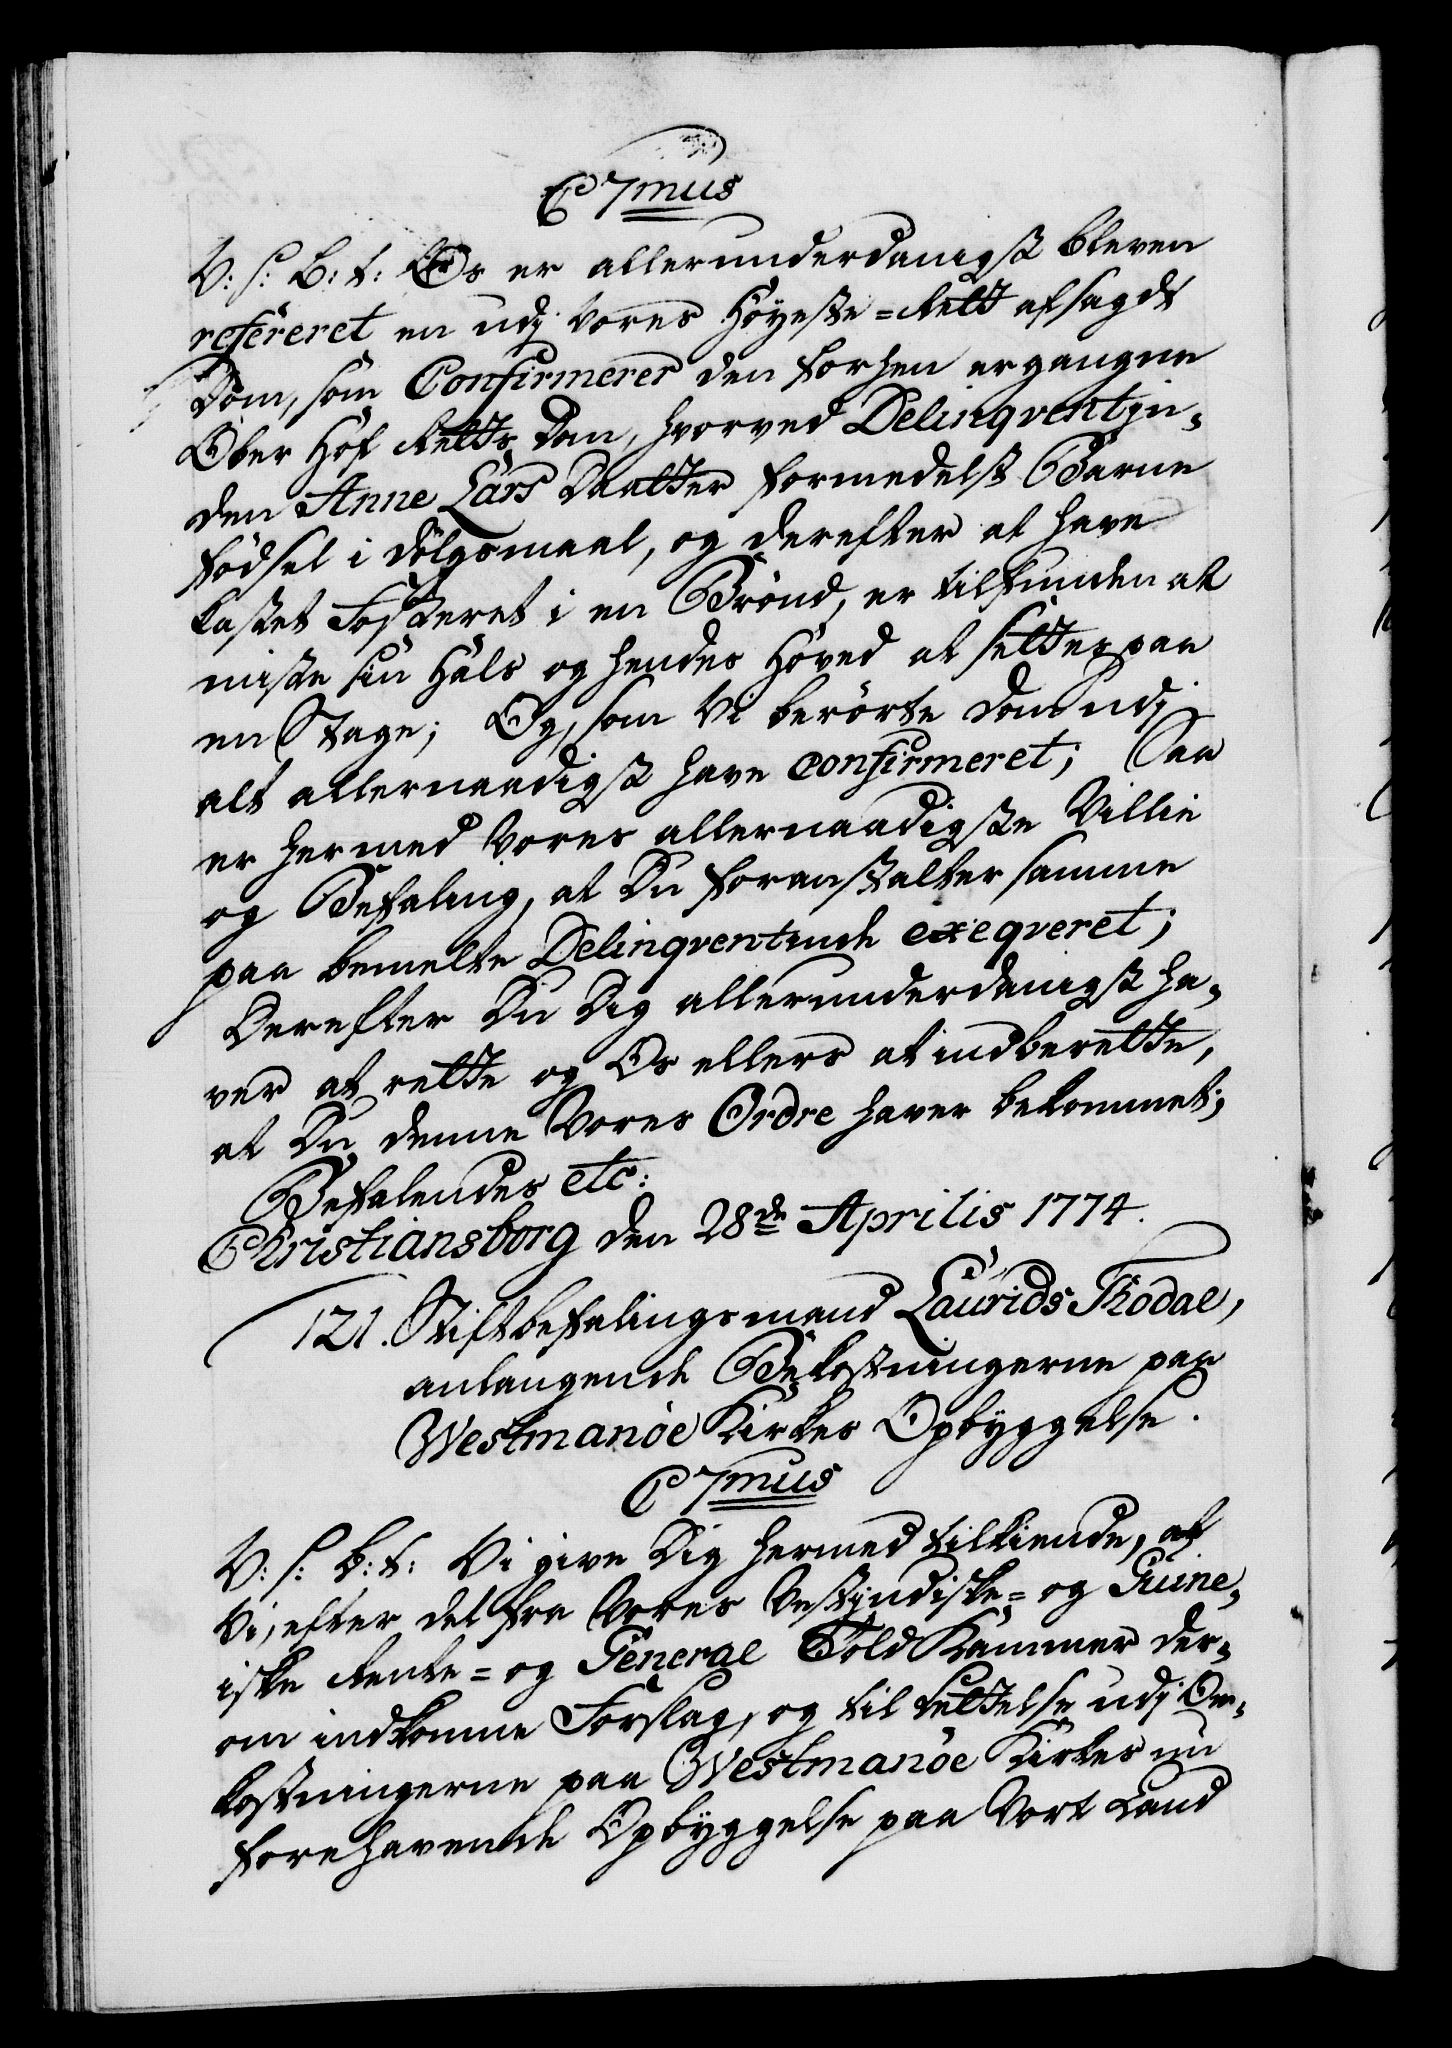 C7mus
V: S: B: t: Os er allerunderdanigst bleven
refereret en udj Vores Höyeste-Rett afsagdt
Dom, som Confirmerer den forhen ergangne
Ober Hof Retts Dom, hvorved Delinqventjn-
den Anne Lars Daatter formedelst Barne
födsel i dölgsmaal, og derefter at have
kastet Fosteret i en Brönd, er tilfunden at
miste sin Hals og hendes Höved at settes paa
en Stage; Og, som Vi berörte Dom udj
alt allernaadigst have confirmeret; Saa
er hermed Vores allernaadigste Villie
og Befaling, at Du foranstalter samme
paa bemelte Delinqventinde exeqveret;
Derefter Du Dig allerunderdanigst ha-
ver at rette og Os ellers at indberette,
at Du denne Vores Ordre haver bekommet;
Befalendes etc:
Christiansborg den 28de Aprilis 1774.
121. Stiftbefalingsmand Laurids Thodal,
anlangende Bekostningerne paa
Westmanöe Kirkes Opbyggelse.
C7mus
V: S: B: t: Vi give Dig hermed tilkiende, at
Vi, efter det fra Vores Vestjndiske- og Guine-
iske Rente- og General Told Kammer der-
om indkomne Forslag, og til Lettelse udj Om-
kostningerne paa Westmanöe Kirkes nu
forehavende Opbyggelse paa Vort Land